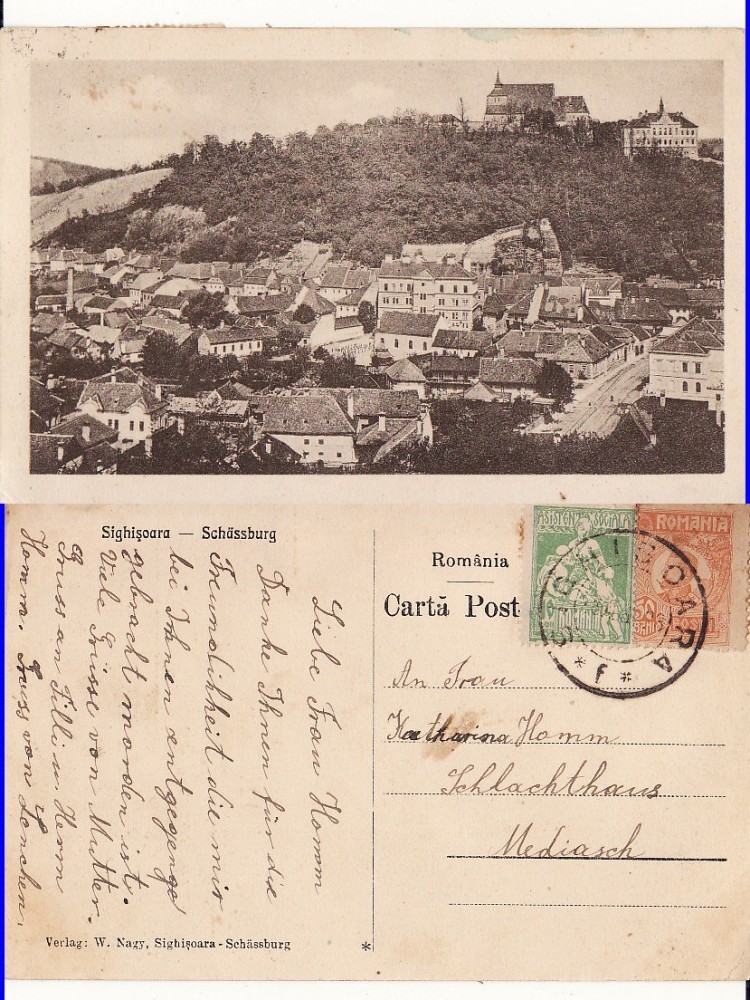 Sighișoara — Schässburg
Liebe Frau Homm
Danke Ihnen für die
Freundlichkeit die mir
bei Ihnen entgegenge
gebracht worden ist.
Viele Grüsse von Mutter.
Gruss an Tilli u. Herrn
Homm. Gruss von Lenchen.
Verlag: W. Nagy, Sighișoara - Schässburg
*
România
Cartă Post
ASISTENȚA SOCIALĂ
ROMANIA
ROMANIA
50 BANI
SIGHIȘOARA
* f *
An Frau
Katharina Homm
Schlachthaus
Mediasch